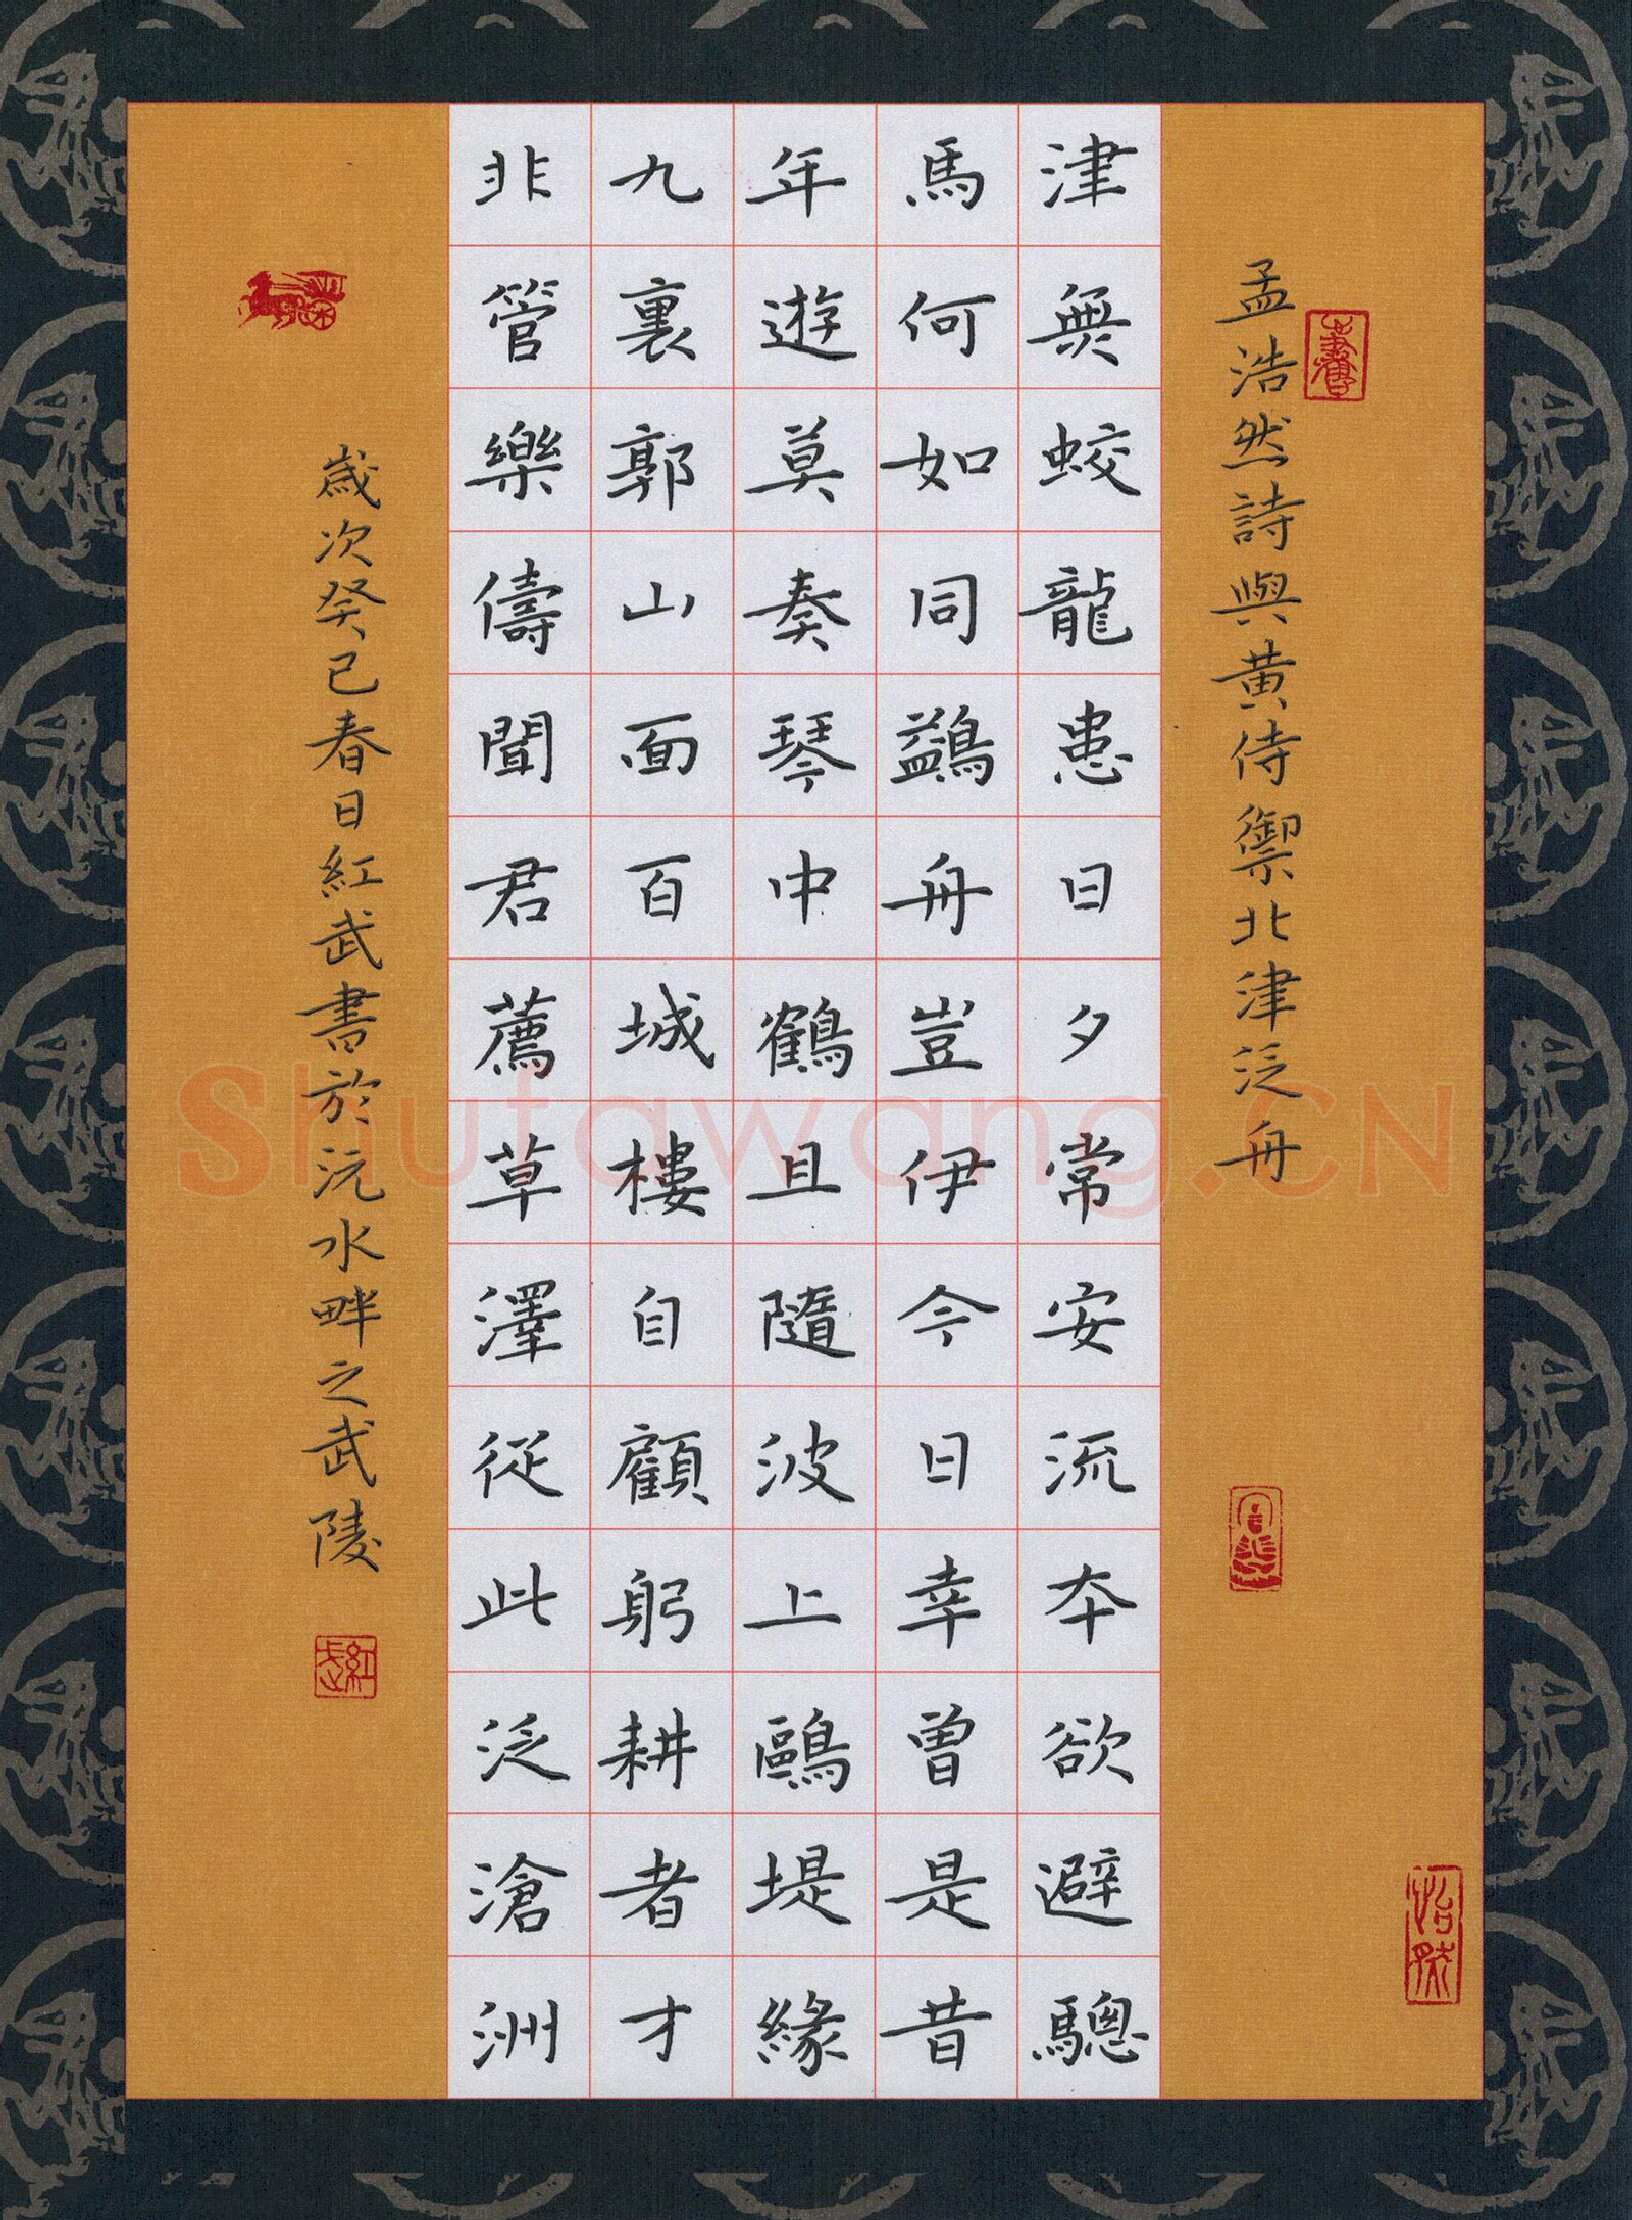 孟浩然詩與黄侍禦北津泛舟
津無蛟龍患日夕常安流本欲避驄
馬何如同鷁舟豈伊今日幸曾是昔
年遊莫奏琴中鶴且隨波上鷗堤緣
九裏郭山面百城樓自顧躬耕者才
非管樂儔聞君薦草澤從此泛滄洲
歲次癸巳春日紅武書於沅水畔之武陵
怡然
紅武
Shufawang.CN